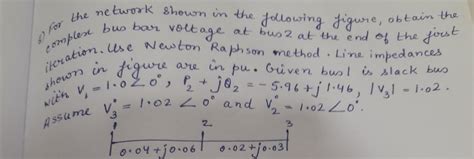 6) For the network shown in the following figure, obtain the
complex bus bar voltage at bus 2 at the end of the first
iteration. Use Newton Raphson method. Line impedances
shown in figure are in pu. Given bus 1 is slack bus
with V₁ = 1.0∠0°, P₂ + jQ₂ = -5.96 + j1.46, |V₃| = 1.02.
Assume V₃° = 1.02∠0° and V₂° = 1.02∠0°.
1 2 3
0.04+j0.06 0.02+j0.03